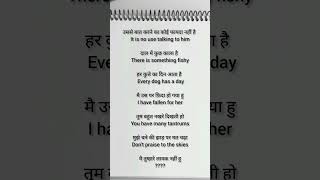 उससे बात करने का कोई फायदा नहीं है
It is no use talking to him
दाल मै कुछ काला है
There is something fishy
हर कुत्ते का दिन आता है
Every dog has a day
मै उस पर फ़िदा हो गया हु
I have fallen for her
तुम बहुत नखरे दिखाती हो
You have many tantrums
मुझे चने की झाड़ पर मत चढ़ा
Don't praise to the skies
मै तुम्हारे लायक नहीं हु
????